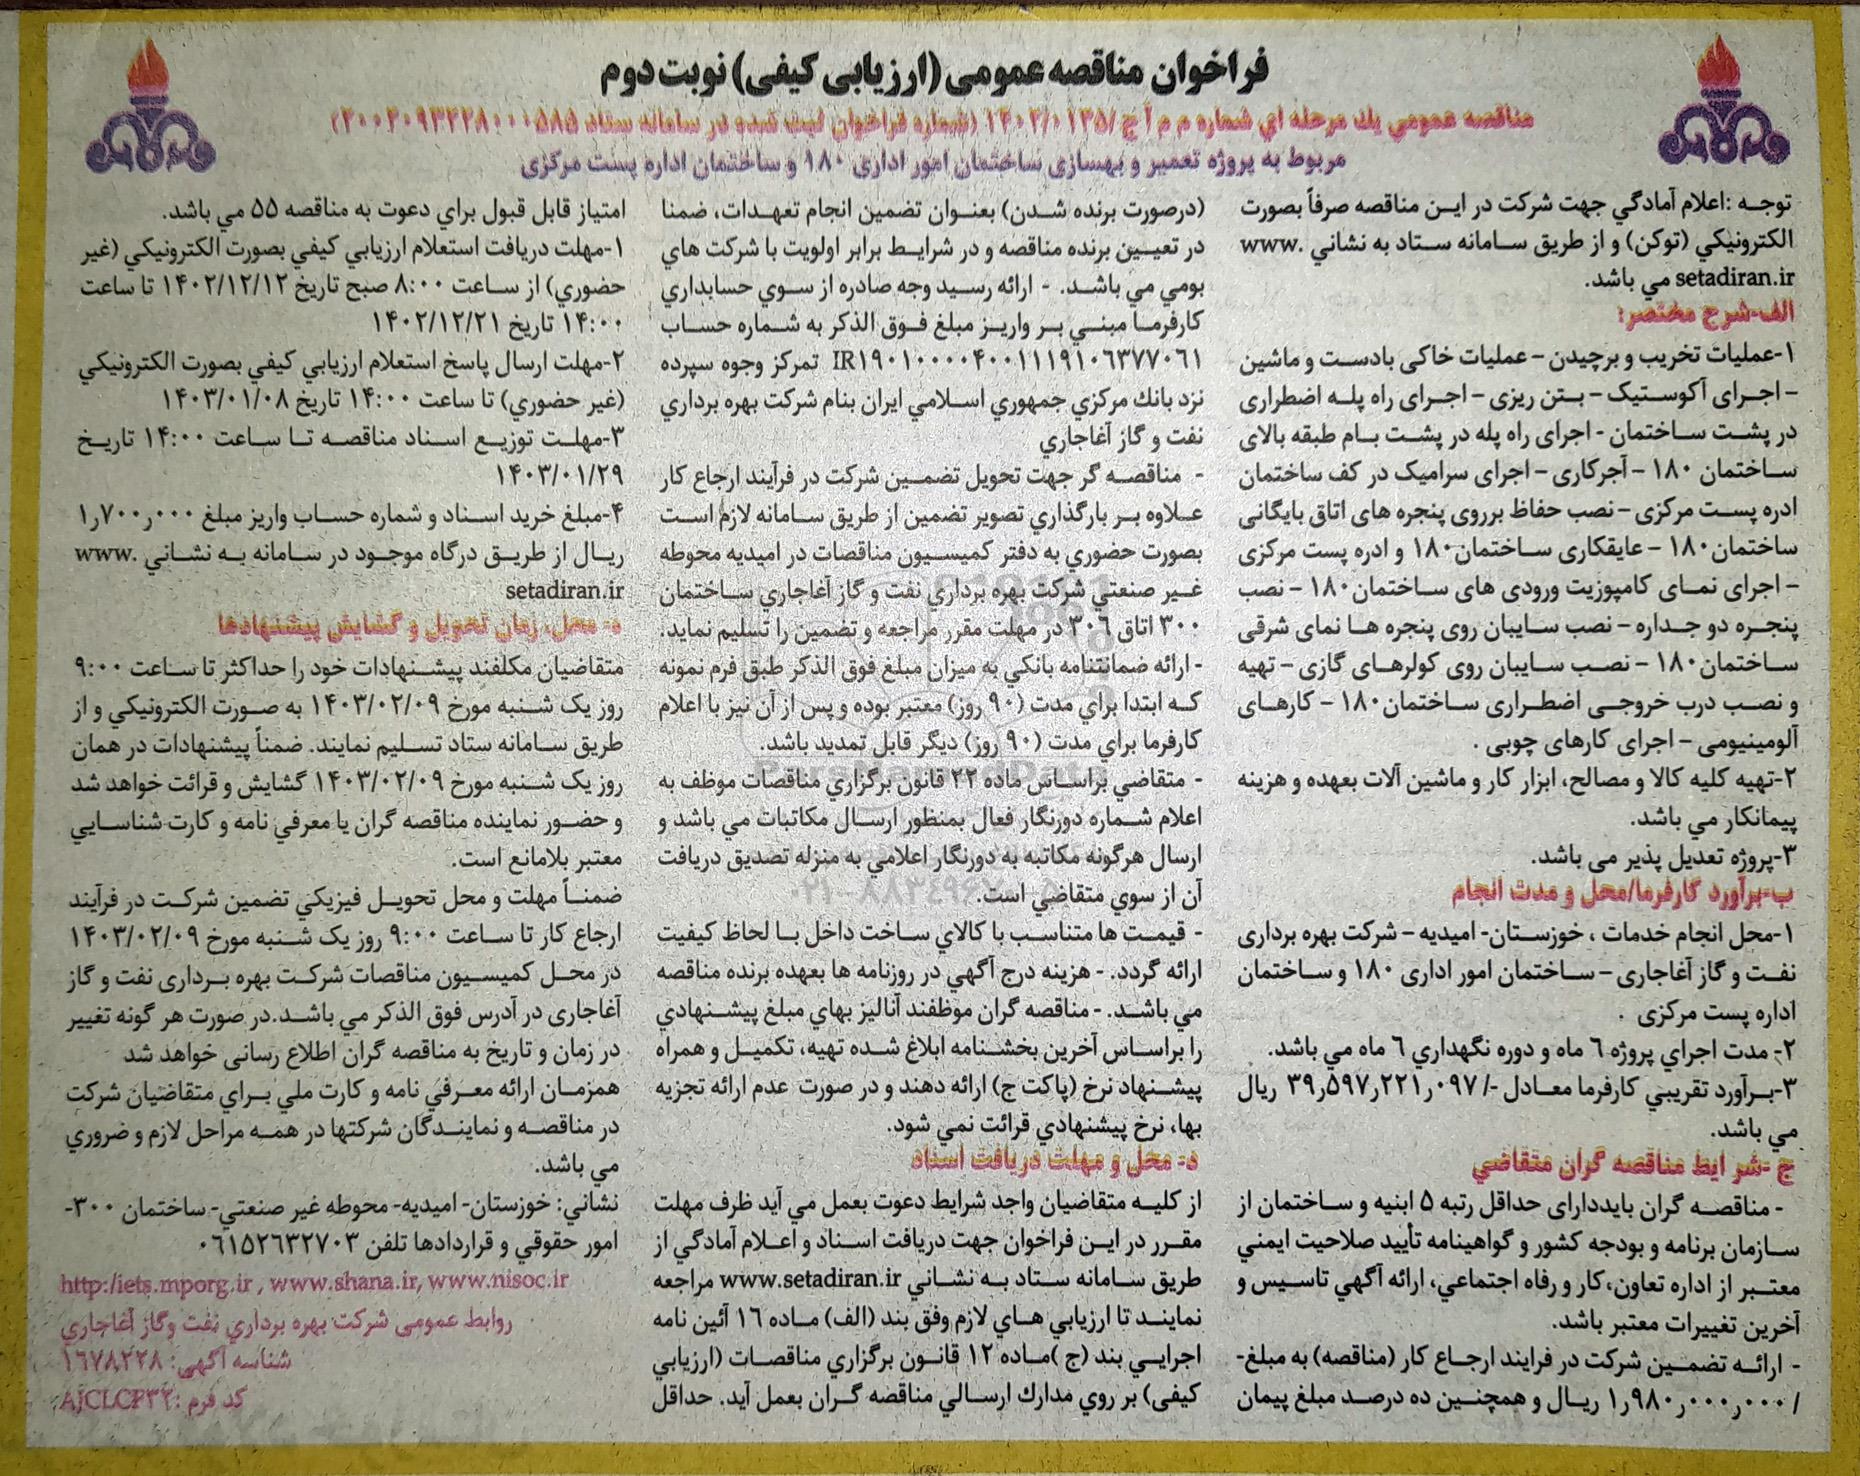 فراخوان مناقصه عمومی (ارزیابی کیفی) نوبت دوم
مناقصه عمومي يك مرحله اي شماره م م آ ج /۱۴۰۲/۰۱۳۵ (شماره فراخوان ثبت شده در سامانه ستاد ۲۰۰۲۰۹۳۲۲۸۰۰۰۵۸۵)
مربوط به پروژه تعمیر و بهسازی ساختمان امور اداری ۱۸۰ و ساختمان اداره پست مرکزی
توجه :اعلام آمادگي جهت شركت در اين مناقصه صرفاً بصورت
الكترونيكي (توكن) و از طريق سامانه ستاد به نشاني www.
setadiran.ir مي باشد.
الف-شرح مختصر:
۱-عملیات تخریب و برچیدن – عملیات خاکی بادست و ماشین
– اجرای آکوستیک – بتن ریزی – اجرای راه پله اضطراری
در پشت ساختمان - اجرای راه پله در پشت بام طبقه بالای
ساختمان ۱۸۰ – آجرکاری – اجرای سرامیک در کف ساختمان
ادره پست مرکزی – نصب حفاظ برروی پنجره های اتاق بایگانی
ساختمان۱۸۰ – عایقکاری ساختمان۱۸۰ و ادره پست مرکزی
– اجرای نمای کامپوزیت ورودی های ساختمان۱۸۰ – نصب
پنجره دو جداره – نصب سایبان روی پنجره ها نمای شرقی
ساختمان۱۸۰ – نصب سایبان روی کولرهای گازی – تهیه
و نصب درب خروجی اضطراری ساختمان۱۸۰ – کارهای
آلومینیومی – اجرای کارهای چوبی .
۲-تهیه کلیه کالا و مصالح، ابزار کار و ماشین آلات بعهده و هزینه
پیمانکار می باشد.
۳-پروژه تعدیل پذیر می باشد.
ب-برآورد کارفرما/محل و مدت انجام
۱-محل انجام خدمات ، خوزستان- امیدیه – شرکت بهره برداری
نفت و گاز آغاجاری – ساختمان امور اداری ۱۸۰ و ساختمان
اداره پست مرکزی .
۲- مدت اجراي پروژه ۶ ماه و دوره نگهداري ۶ ماه مي باشد.
۳-برآورد تقريبي كارفرما معادل -/۳۹٫۵۹۷٫۲۲۱٫۰۹۷ ريال
مي باشد.
ج -شرایط مناقصه گران متقاضي
- مناقصه گران بایددارای حداقل رتبه ۵ ابنیه و ساختمان از
سازمان برنامه و بودجه کشور و گواهینامه تأیید صلاحیت ایمني
معتبر از اداره تعاون،کار و رفاه اجتماعي، ارائه آگهي تاسیس و
آخرین تغییرات معتبر باشد.
- ارائه تضمین شرکت در فرایند ارجاع کار (مناقصه) به مبلغ-
/۱٫۹۸۰٫۰۰۰٫۰۰۰ ریال و همچنین ده درصد مبلغ پیمان
(درصورت برنده شدن) بعنوان تضمین انجام تعهدات، ضمنا
در تعيين برنده مناقصه و در شرايط برابر اولويت با شركت هاي
بومي مي باشد. - ارائه رسيد وجه صادره از سوي حسابداري
كارفرما مبني بر واريز مبلغ فوق الذكر به شماره حساب
IR۱۹۰۱۰۰۰۰۴۰۰۱۱۱۹۱۰۶۳۷۷۰۶۱ تمركز وجوه سپرده
نزد بانك مركزي جمهوري اسلامي ايران بنام شركت بهره برداري
نفت و گاز آغاجاري
- مناقصه گر جهت تحويل تضمين شركت در فرآيند ارجاع كار
علاوه بر بارگذاري تصوير تضمين از طريق سامانه لازم است
بصورت حضوري به دفتر كميسيون مناقصات در اميديه محوطه
غير صنعتي شركت بهره برداري نفت و گاز آغاجاري ساختمان
۳۰۰ اتاق ۳۰۶ در مهلت مقرر مراجعه و تضمين را تسليم نمايد.
- ارائه ضمانتنامه بانكي به ميزان مبلغ فوق الذكر طبق فرم نمونه
كه ابتدا براي مدت (۹۰ روز) معتبر بوده و پس از آن نيز با اعلام
كارفرما براي مدت (۹۰ روز) ديگر قابل تمديد باشد.
- متقاضي براساس ماده ۲۲ قانون برگزاري مناقصات موظف به
اعلام شماره دورنگار فعال بمنظور ارسال مكاتبات مي باشد و
ارسال هرگونه مكاتبه به دورنگار اعلامي به منزله تصديق دريافت
آن از سوي متقاضي است.
- قيمت ها متناسب با كالاي ساخت داخل با لحاظ كيفيت
ارائه گردد. - هزينه درج آگهي در روزنامه ها بعهده برنده مناقصه
مي باشد. - مناقصه گران موظفند آناليز بهاي مبلغ پيشنهادي
را براساس آخرين بخشنامه ابلاغ شده تهيه، تكميل و همراه
پيشنهاد نرخ (پاكت ج) ارائه دهند و در صورت عدم ارائه تجزيه
بها، نرخ پيشنهادي قرائت نمي شود.
د- محل و مهلت دريافت اسناد
از كليه متقاضيان واجد شرايط دعوت بعمل مي آيد ظرف مهلت
مقرر در اين فراخوان جهت دريافت اسناد و اعلام آمادگي از
طريق سامانه ستاد به نشاني www.setadiran.ir مراجعه
نمايند تا ارزيابي هاي لازم وفق بند (الف) ماده ۱۶ آئين نامه
اجرايي بند (ج )ماده ۱۲ قانون برگزاري مناقصات (ارزيابي
كيفي) بر روي مدارك ارسالي مناقصه گران بعمل آيد. حداقل
امتياز قابل قبول براي دعوت به مناقصه ۵۵ مي باشد.
۱-مهلت دريافت استعلام ارزيابي كيفي بصورت الكترونيكي (غير
حضوري) از ساعت ۸:۰۰ صبح تاريخ ۱۴۰۲/۱۲/۱۲ تا ساعت
۱۴:۰۰ تاريخ ۱۴۰۲/۱۲/۲۱
۲-مهلت ارسال پاسخ استعلام ارزيابي كيفي بصورت الكترونيكي
(غير حضوري) تا ساعت ۱۴:۰۰ تاريخ ۱۴۰۳/۰۱/۰۸
۳-مهلت توزيع اسناد مناقصه تا ساعت ۱۴:۰۰ تاريخ
۱۴۰۳/۰۱/۲۹
۴-مبلغ خريد اسناد و شماره حساب واريز مبلغ ۱٫۷۰۰٫۰۰۰
ريال از طريق درگاه موجود در سامانه به نشاني www.
setadiran.ir
ه- محل، زمان تحويل و گشايش پيشنهادها
متقاضيان مكلفند پيشنهادات خود را حداكثر تا ساعت ۹:۰۰
روز یک شنبه مورخ ۱۴۰۳/۰۲/۰۹ به صورت الكترونيكي و از
طريق سامانه ستاد تسليم نمايند. ضمناً پيشنهادات در همان
روز یک شنبه مورخ ۱۴۰۳/۰۲/۰۹ گشايش و قرائت خواهد شد
و حضور نماينده مناقصه گران با معرفي نامه و كارت شناسايي
معتبر بلامانع است.
ضمناً مهلت و محل تحويل فيزيكي تضمين شركت در فرآيند
ارجاع كار تا ساعت ۹:۰۰ روز یک شنبه مورخ ۱۴۰۳/۰۲/۰۹
در محل کمیسیون مناقصات شرکت بهره برداری نفت و گاز
آغاجاری در آدرس فوق الذکر مي باشد.در صورت هر گونه تغيير
در زمان و تاریخ به مناقصه گران اطلاع رسانی خواهد شد
همزمان ارائه معرفي نامه و كارت ملي براي متقاضيان شركت
در مناقصه و نمايندگان شركتها در همه مراحل لازم و ضروري
مي باشد.
نشاني: خوزستان- اميديه- محوطه غير صنعتي- ساختمان ۳۰۰-
امور حقوقي و قراردادها تلفن ۰۶۱۵۲۶۳۲۷۰۳
http:/iets.mporg.ir , www.shana.ir, www.nisoc.ir
روابط عمومی شرکت بهره برداري نفت وگاز آغاجاري
شناسه آگهی: ۱۶۷۸۲۲۸
کد فرم :AJCLCF۳۲